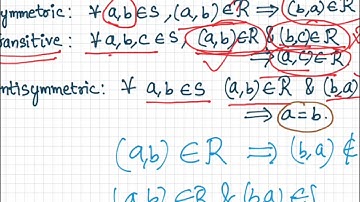 ymmetric: ∀ a,b ∈ S, (a,b) ∈ R ⇒ (b,a) ∈ R
ransitive: ∀ a,b,c ∈ S, (a,b) ∈ R & (b,c) ∈ R
⇒ (a,c) ∈ R
ntisymmetric: ∀ a,b ∈ S (a,b) ∈ R & (b,a)
⇒ a = b.
(a,b) ∈ R ⇒ (b,a) ∉
(a,b) ∈ R & (b,a) ∈ S